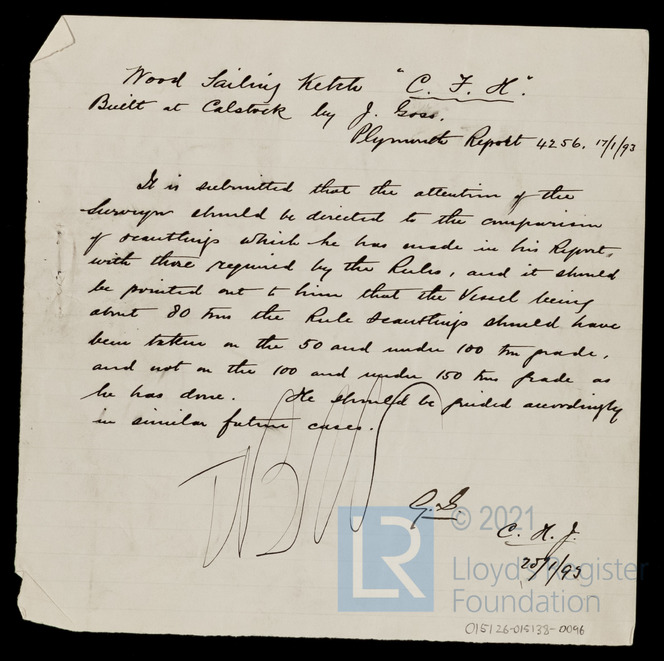 Wood Sailing Ketch "C. F. H".
Built at Calstock by J. Goss.
Plymouth Report 4256. 17/1/93
It is submitted that the attention of the
Surveyor should be directed to the comparison
of scantlings which he has made in his Report,
with those required by the Rules, and it should
be pointed out to him that the Vessel being
about 80 tons the Rule scantlings should have
been taken on the 50 and under 100 ton grade,
and not on the 100 and under 150 tons grade as
he has done. He should be guided accordingly
in similar future cases.
G.S.
C. H. J.
25/1/93
© 2021
LR
Lloyd's Register
Foundation
015126-015138-0096